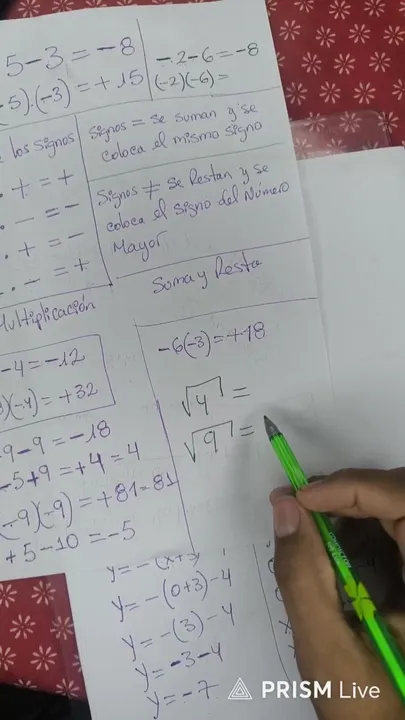 5 - 3 = -8
-2 - 6 = -8
5).(-3) = + 15
(-2)(-6) =
los signos
signos = se suman y se
coloca el mismo signo
. + = +
. - = -
. + = -
. - = +
Signos ≠ se Restan y se
coloca el signo del Número
Mayor
Suma y Resta
Multiplicación
-4 = -12
)(-4) = +32
-6(-3) = +18
√4 =
√9 =
-9 - 9 = -18
-5 + 9 = +4 = 4
(-9)(-9) = +81 = 81
+5 - 10 = -5
y = -(0+3) - 4
y = -(3) - 4
y = -3 - 4
y = -7
PRISM Live